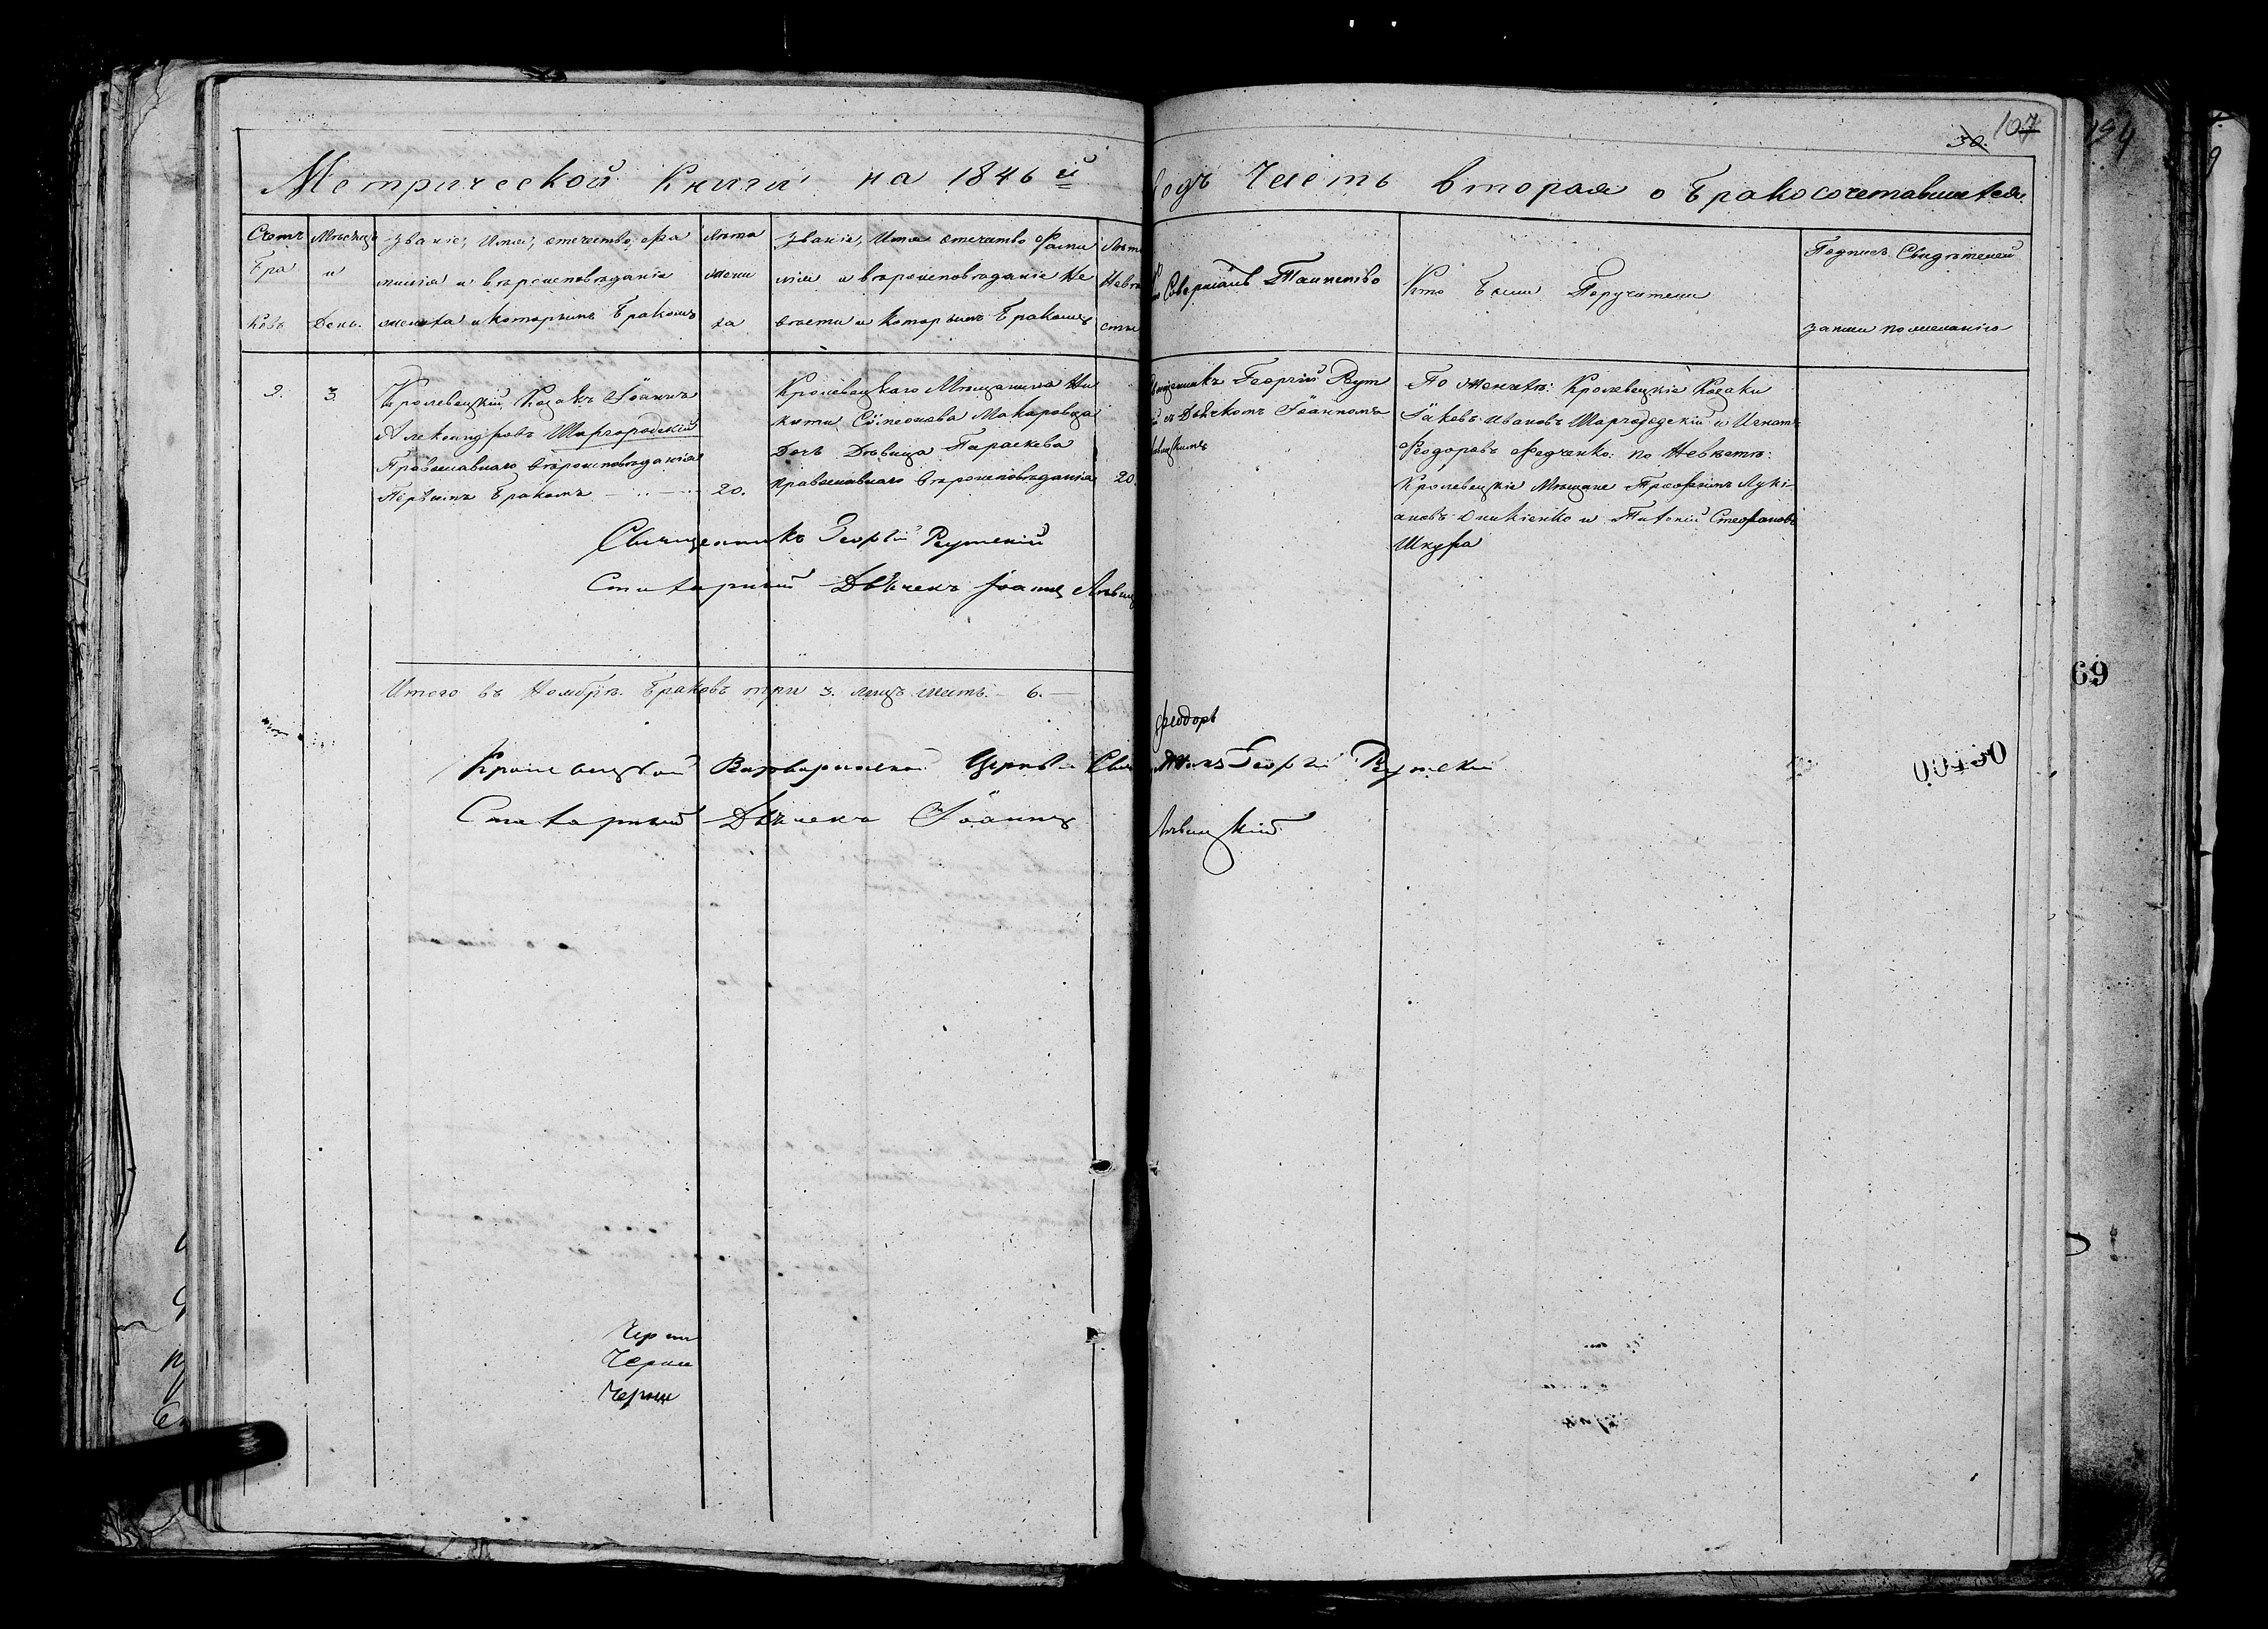 107
30.
Метрической Книги на 1846й
Годъ Часть вторая о Бракосочетавшихся.
Счетъ Бра ковъ
Мѣсяцъ и День.
Званіе, Имя, отчество, фа
милія и вѣроисповѣданіе
жениха и которымъ Бракомъ
Лѣта жени ха
Званіе, Имя отчество Фами
лія и вѣроисповѣданіе Не
вѣсты и которымъ Бракомъ
Лѣта Невѣ сты
Совершалъ Таинство
Кто были Поручители
Подпись Свидѣтелей
записи по желанію
2.
3.
Кролевецкій Козакъ Іоаннъ
Александровъ Шаргородскій
Православнаго вѣроисповѣданія
Первымъ Бракомъ
20.
Кролевецкаго Мѣщанина Ни
киты Сѵмеонова Макаровца
Дочь Дѣвица Параскева
православнаго вѣроисповѣданія
20.
Священникъ Георгій Рут
й съ Дьячкомъ Іоанномъ
Лѣвицкимъ
По женихѣ: Кролевецкіе Козаки
Іаковъ Ивановъ Шаргородскій и Игнатъ
Феодоровъ Федченко: по Невѣстѣ:
Кролевецкіе Мѣщане Трофимъ Лукі
ановъ и Тихоній Стефановъ
Шкура
Священникъ Георгій Рутскій
Стихарный Дьячекъ Іоаннъ Лѣвиц
Итого въ Ноябрѣ Браковъ три 3. лицъ шесть. 6.
Феодоръ
Кролевецкой Варваринской Церкви Священникъ Георгій Рутскій
Стихарный Дьячекъ Іоаннъ Лѣвицкій
Черни
Черни
Черни
69